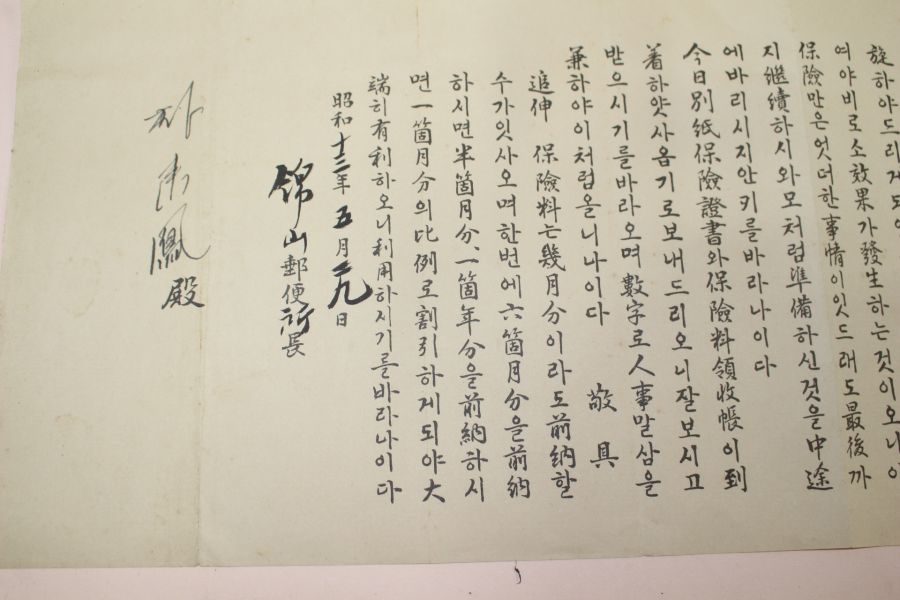 旋하야드리게되
여야비로소效果가發生하는것이오니이
保險만은엇더한事情이잇드래도最後까
지繼續하시와모처럼準備하신것을中途
에바리시지안키를바라나이다
今日別紙保險證書와保險料領收帳이到
着하얏사옵기로보내드리오니잘보시고
받으시기를바라오며數字로人事말삼을
兼하야이처럼올니나이다 敬具
追伸 保險料는幾月分이라도前納할
수가잇사오며한번에六箇月分을前納
하시면半箇月分、一箇年分을前納하시
면一箇月分의比例로割引하게되야大
端히有利하오니利用하시기를바라나이다
昭和十三年五月二九日
錦山郵便所長
鳳殿